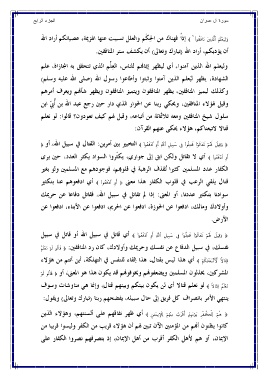 سورة آل عمران الجزء الرابع
﴿وَلِيَعْلَمَ الَّذِينَ نَافَقُوا﴾ إذا فهناك من الحكم والعلل تسببت عنها الهزيمة، عصيانكم أراد الله
أن يؤدبكم، أراد الله (تبارك وتعالى) أن يكشف ستر المنافقين.
وليعلم الله الذين آمنوا، أي ليظهر إيمانهم للناس، العلم الذي تتحقق به المجازاة، علم
الشهادة، يظهر ليعلم الذين آمنوا وثبتوا وأطاعوا رسول الله (صلى الله عليه وسلم)
وكذلك ليميز المنافقين، يظهر المنافقون ويتميز المنافقون ويظهر شأنهم ويعرف أمرهم
وقيل لهؤلاء المنافقين، ويحكي ربنا عن الحوار الذي دار حين رجع عبد الله بن أبي ابن
سلول شيخ المنافقين ومعه ثلاثمائة من أتباعه، وقيل لهم كيف تعودون؟ قالوا: لو نعلم
قتالا لاتبعناكم، هؤلاء يحكي عنهم القرآن:
﴿وَقِيلَ لَهُمْ تَعَالَوْا قَاتِلُوا فِي سَبِيلِ اللَّهِ أَوِ ادْفَعُوا﴾ التخيير بين أمرين: القتال في سبيل الله، أو ﴿
أَوِ ادْفَعُوا﴾ أي لا تقاتل ولكن ابق إلى جواري، يكثروا السواد يكثر العدد، حين يرى
الكفار عدد المسلمين كثيرا تُقذف الرهبة في قلوبهم، فوجودهم مع المسلمين ولو بغير
قتال يلقي الرعب في قلوب الكفار هذا معنى ﴿أَوِ ادْفَعُوا﴾ أي ادفعوهم عنا بتكثير
سوادنا بتكثير عددنا، أو المعنى: إذا لم تقاتل في سبيل الله، فقاتل دفاعا عن حريمك
وأولادك ومالك، ادفعوا عن الحوزة، ادفعوا عن الحرى، ادفعوا عن الأبناء، ادفعوا عن
الأرض.
﴿وَقِيلَ لَهُمْ تَعَالَوْا قَاتِلُوا فِي سَبِيلِ اللَّهِ أَوِ ادْفَعُوا﴾ أي قاتل في سبيل الله أو قاتل في سبيل
نفسك، في سبيل الدفاع عن نفسك وحريمك وأولادك، كان رد المنافقين: ﴿قَالُوا لَوْ نَعْلَمُ
قِتَالًا لَاتَّبَعْنَاكُمْ﴾ أي هذا ليس بقتال، هذا إلقاء للنفس في التهلكة، أين أنتم من هؤلاء
المشركين، يخذلون المسلمين ويضعفونهم ويخوفونهم قد يكون هذا هو المعنى، أو ﴿لَوْ نَعْلَمُ
قِتَالًا﴾ أو نعلم قتالا أي لن يكون بينكم وبينهم قتال، وإنما هي مناوشات وسوف
ينتهي الأمر بانصراف كل فريق إلى حال سبيله، يفضحهم ربنا (تبارك وتعالى) ويقول:
﴿هُمْ لِلْكُفْرِ يَوْمَئِذٍ أَقْرَبُ مِنْهُمْ لِلْإِيمَانِ﴾ أي ظهر نفاقهم على ألسنتهم، وهؤلاء الذين
كانوا يظنون أنهم من المؤمنين الآن تبين لهم أن هؤلاء قرب من الكفر وليسوا قربا من
الإيمان، أو هم لأهل الكفر أقرب من أهل الإيمان، إذ بتصرفهم نصروا الكفار على